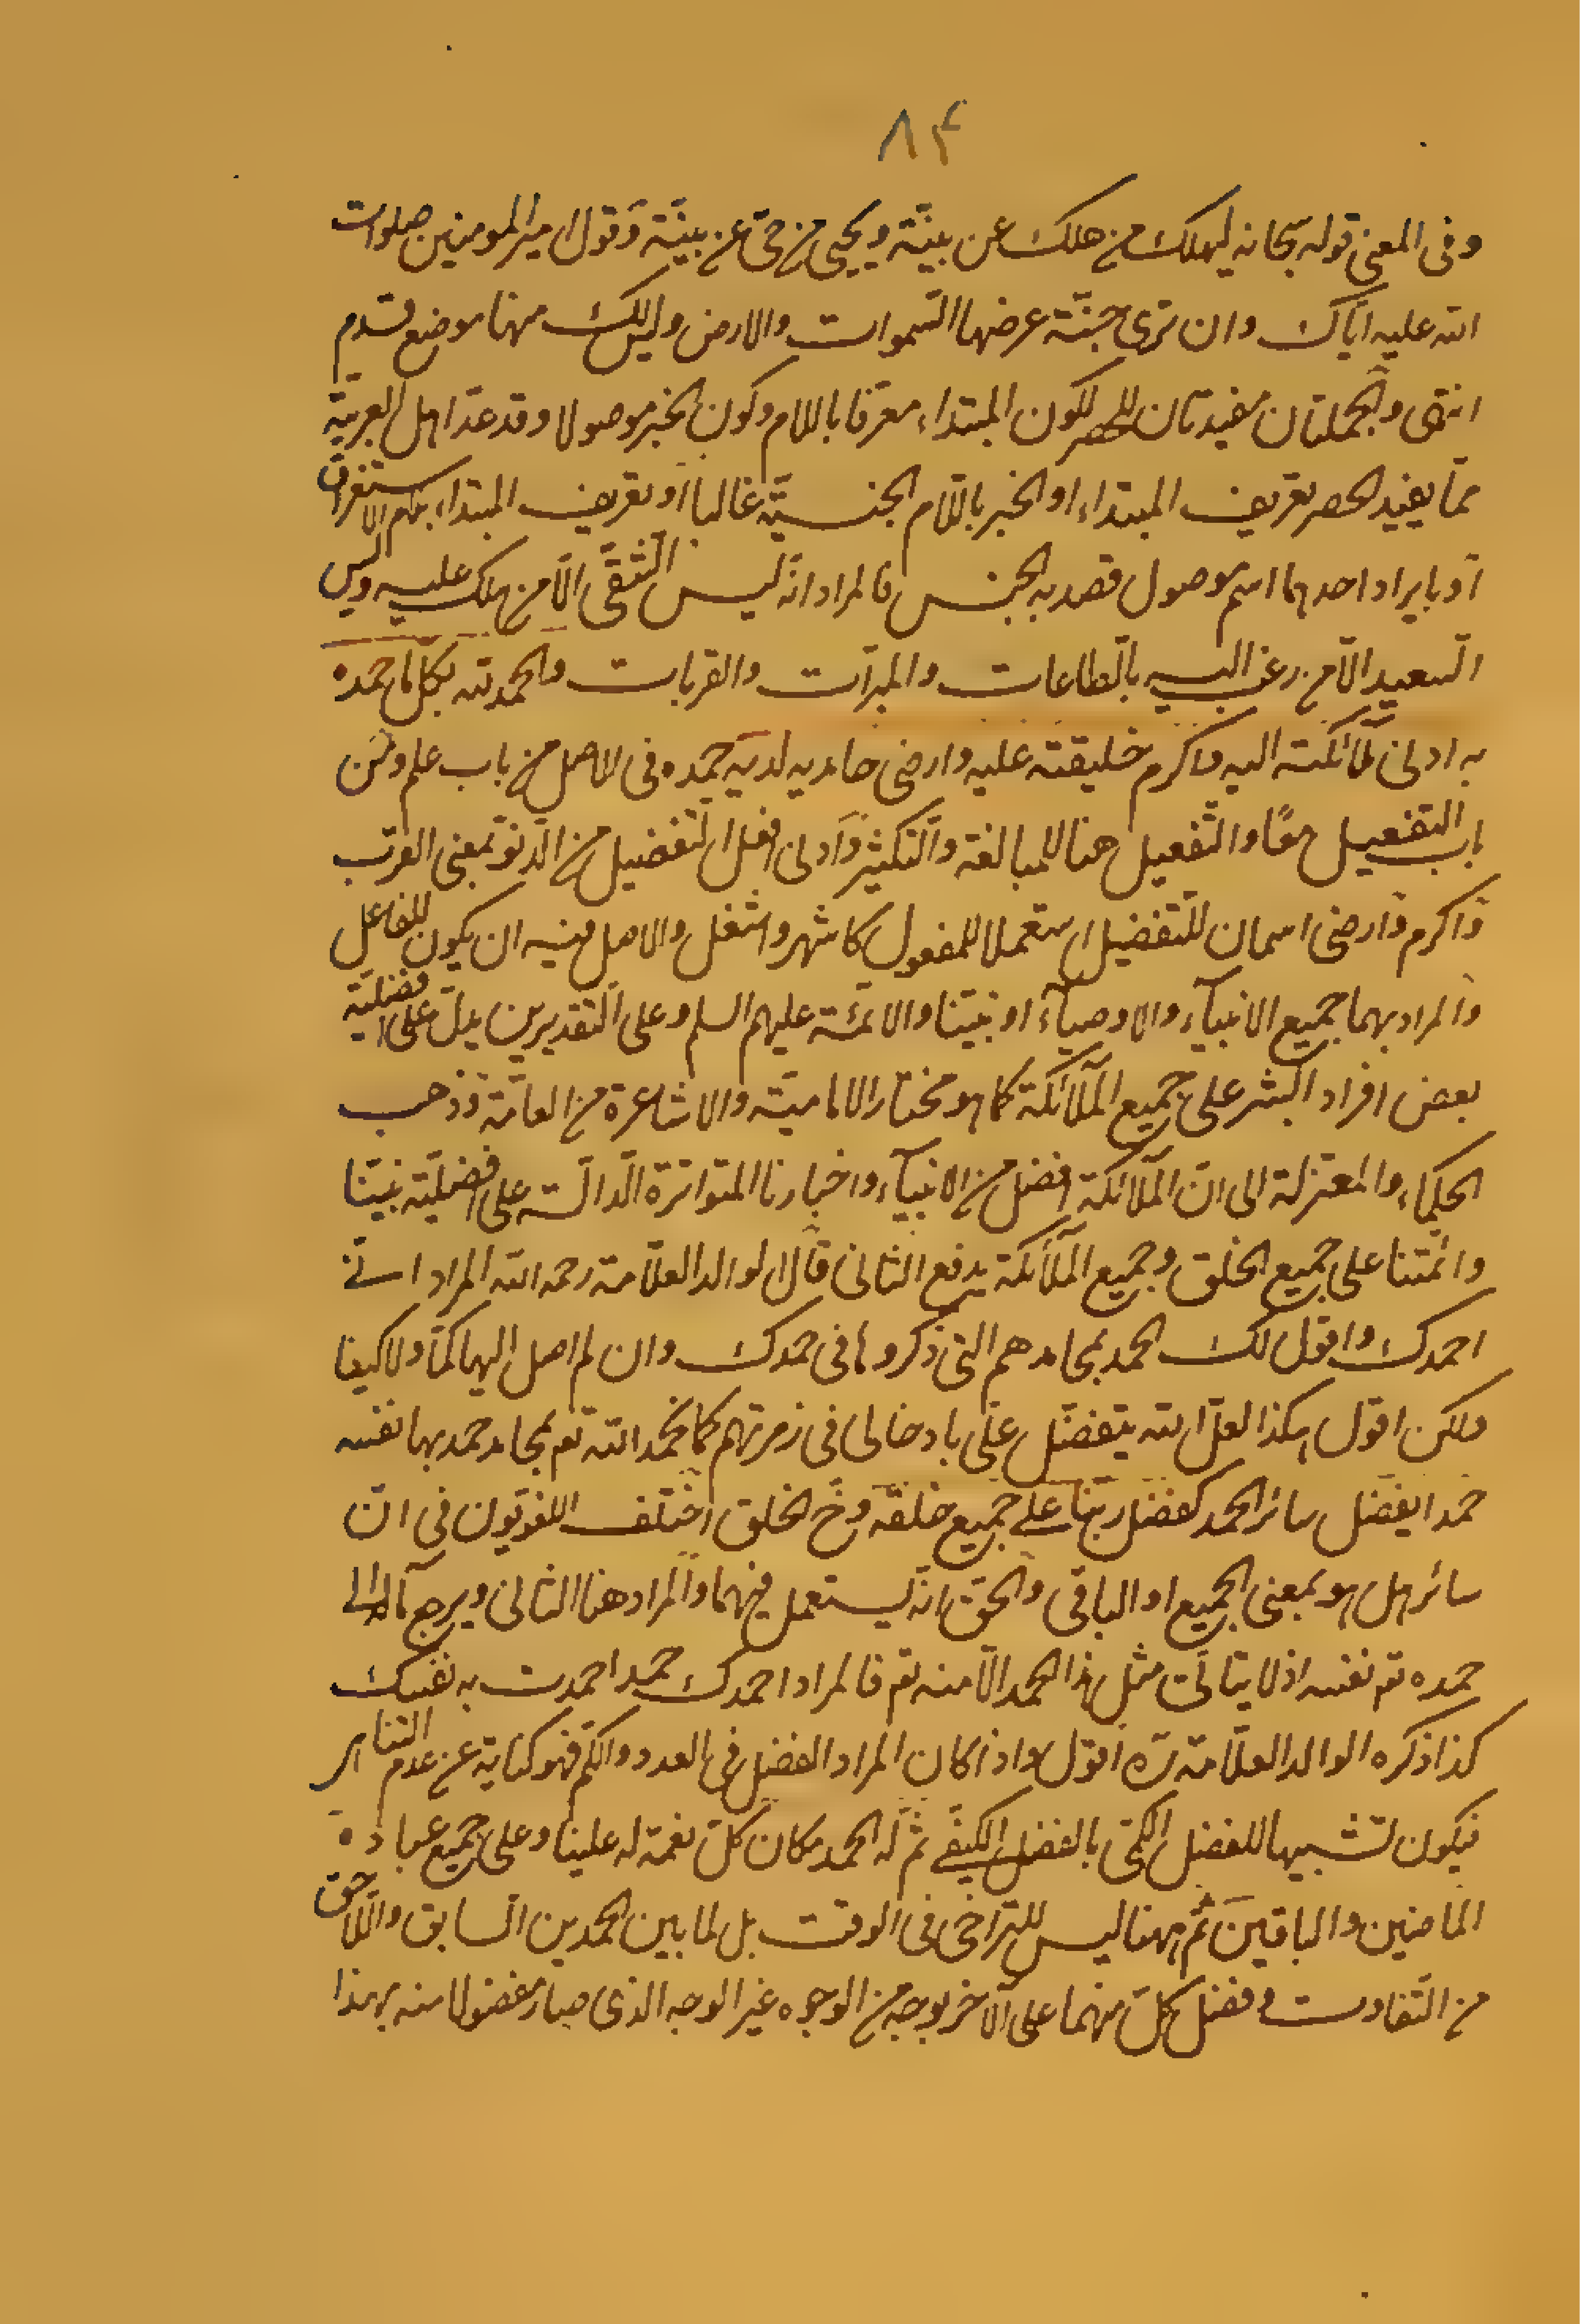 ۸۴
وفى المعنى قوله سبحانه ليهلك من هلك عن بينة ويحيى من حىّ عن بينة وقول امير المومنين صلوات
الله عليه اياك وان ترى جنّة عرضها السّموات والارض وليس لك فيها موضع قدم
انتهى والجملتان مفيدتان للحصر لكون المبتداء معرفا باللام وكون الخبر موصولا وقد عدّ اهل العربيّة
ممّا يفيد الحصر تعريف المبتداء او الخبر باللّام الجنسيّة غالبا او تعريف المبتداء بلام الاستغراق
او بايراد احدهما اسم موصول قصد به الجنس فالمراد انّه ليس الشّقىّ الّا من هلك عليه وليس
السّعيد الّا من رغب اليه بالطّاعات والمبرّات والقربات والحمد لله بكلّ ما حمده
به ادنى ملائكته اليه واكرم خليقته عليه وارضى حامديه لديه حمده فى الاصل من باب علم ومن
باب التّفعيل معًا والتّفعيل هنا للمبالغة والتّكثير وادنى افعل التّفضيل من الدّنوّ بمعنى القرب
واكرم وارضى اسمان للتّفضيل استعملا للمفعول كاشهر واشغل والاصل فيه ان يكون للفاعل
والمراد بهما جميع الانبيآء والاوصيآء او نبيّنا والائمّة عليهم السلم وعلى التّقديرين يدلّ على افضليّة
بعض افراد البشر على جميع الملآئكة كما هو مختار الاماميّة والاشاعرة من العامّة وذهب
الحكماء والمعتزلة الى انّ الملآئكة افضل من الانبيآء واخبارنا المتواترة الدّالّة على افضليّة نبيّنا
وائمّتنا على جميع الخلق وجميع الملآئكة يدفع الثانى قال الوالد العلّامة رحمه الله المراد انى
احمدك واقول لك الحمد بمحامدهم التى ذكروها فى حمدك وان لم اصل اليها كمّا ولا كيفا
ولكن اقول هكذا لعلّ الله يتفضّل علىّ بادخالى فى زمرتهم كما نحمد الله تعم بمحامد حمد بها نفسه
حمدا يفضل سائر الحمد كفضل ربّنا على جميع خلقه وخ الخلق اختلف اللغويّون فى انّ
سائر هل هو بمعنى الجميع او الباقى والحقّ انّه يستعمل فيهما والمراد هنا الثانى ويرجع مآله الى
حمده تعم نفسه اذ لا يتاتّى مثل هذا الحمد الّا منه تعم فالمراد احمدك حمدا حمدت به نفسك
كذا ذكره الوالد العلّامة ره اقول واذا كان المراد الفضل فى العدد والكم فهو كناية عن عدم التناهى
فيكون تشبيها للفضل الكمّى بالفضل الكيفى ثمّ له الحمد مكان كلّ نعمة له علينا وعلى جميع عباده
الماضين والباقين ثمّ ههنا ليس للتراخى فى الوقت بل لما بين الحمدين السابق واللّاحق
من التّفاوت وفضل كلّ منهما على الآخر بوجه من الوجوه غير الوجه الذى صار مفضولا منه بهذا